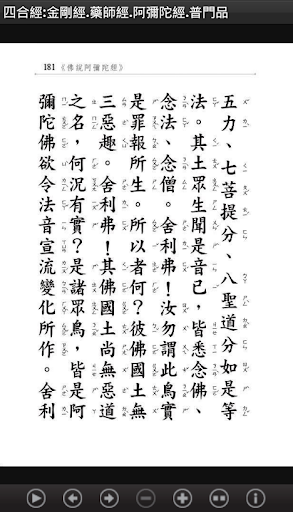 四合經:金剛經.藥師經.阿彌陀經.普門品
181《佛說阿彌陀經》
五力、七菩提分、八聖道分如是等
法。其土眾生聞是音已，皆悉念佛、
念法、念僧。舍利弗！汝勿謂此鳥實
是罪報所生。所以者何？彼佛國土無
三惡趣。舍利弗！其佛國土尚無三惡道
之名，何況有實？是諸眾鳥，皆是阿
彌陀佛欲令法音宣流變化所作。舍利